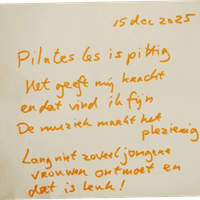 15 dec 2025
Pilates les is pittig
Het geeft mij kracht
en dat vind ik fijn
De muziek maakt het
plezierig
Lang niet zoveel jongere
vrouwen ontmoet en
dat is leuk!